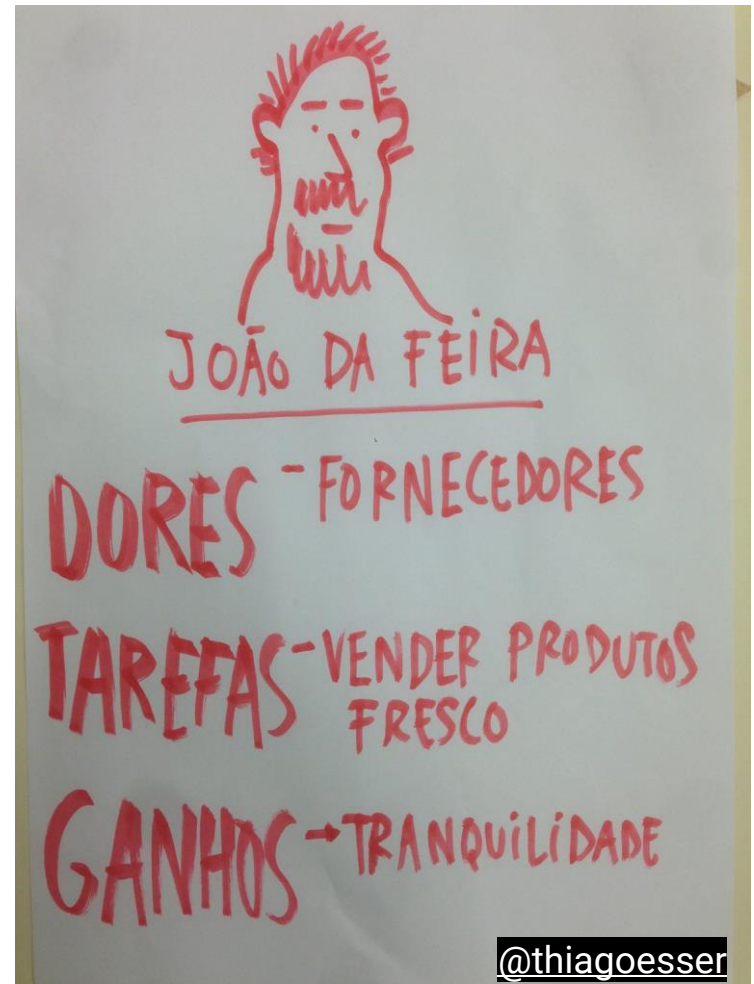 JOÃO DA FEIRA
DORES - FORNECEDORES
TAREFAS - VENDER PRODUTOS
FRESCO
GANHOS → TRANQUILIDADE
@thiagoesser